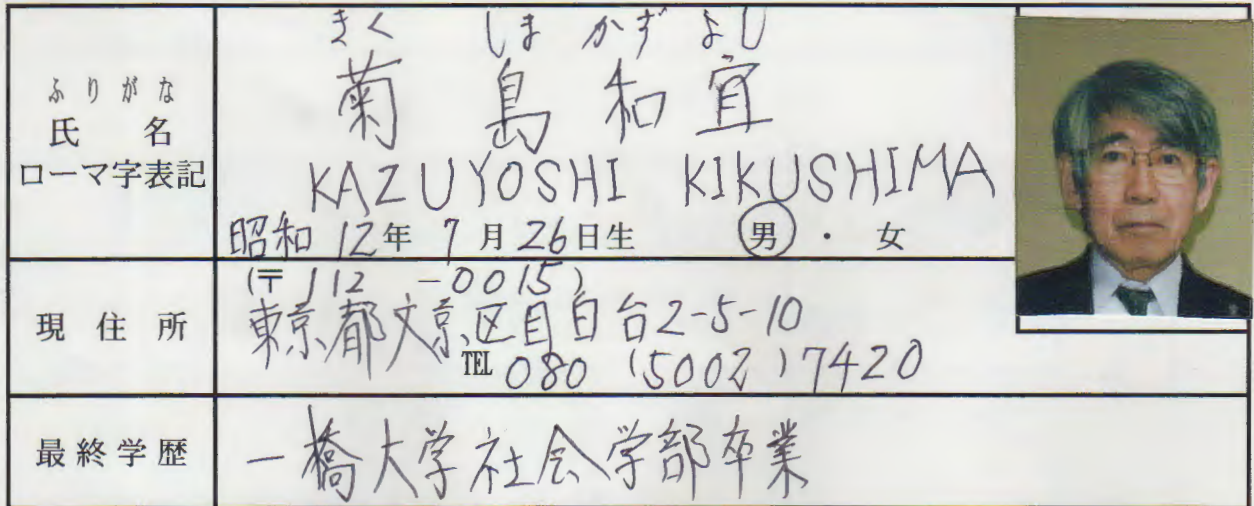 ふりがな
氏 名
ローマ字表記
きく しま かず よし
菊 島 和 宜
KAZUYOSHI KIKUSHIMA
昭和 12年 7月 26日生 男 ・ 女
現 住 所
(〒112-0015)
東京都文京区目白台2-5-10
TEL 080 (5002) 7420
最終学歴
一橋大学社会学部卒業